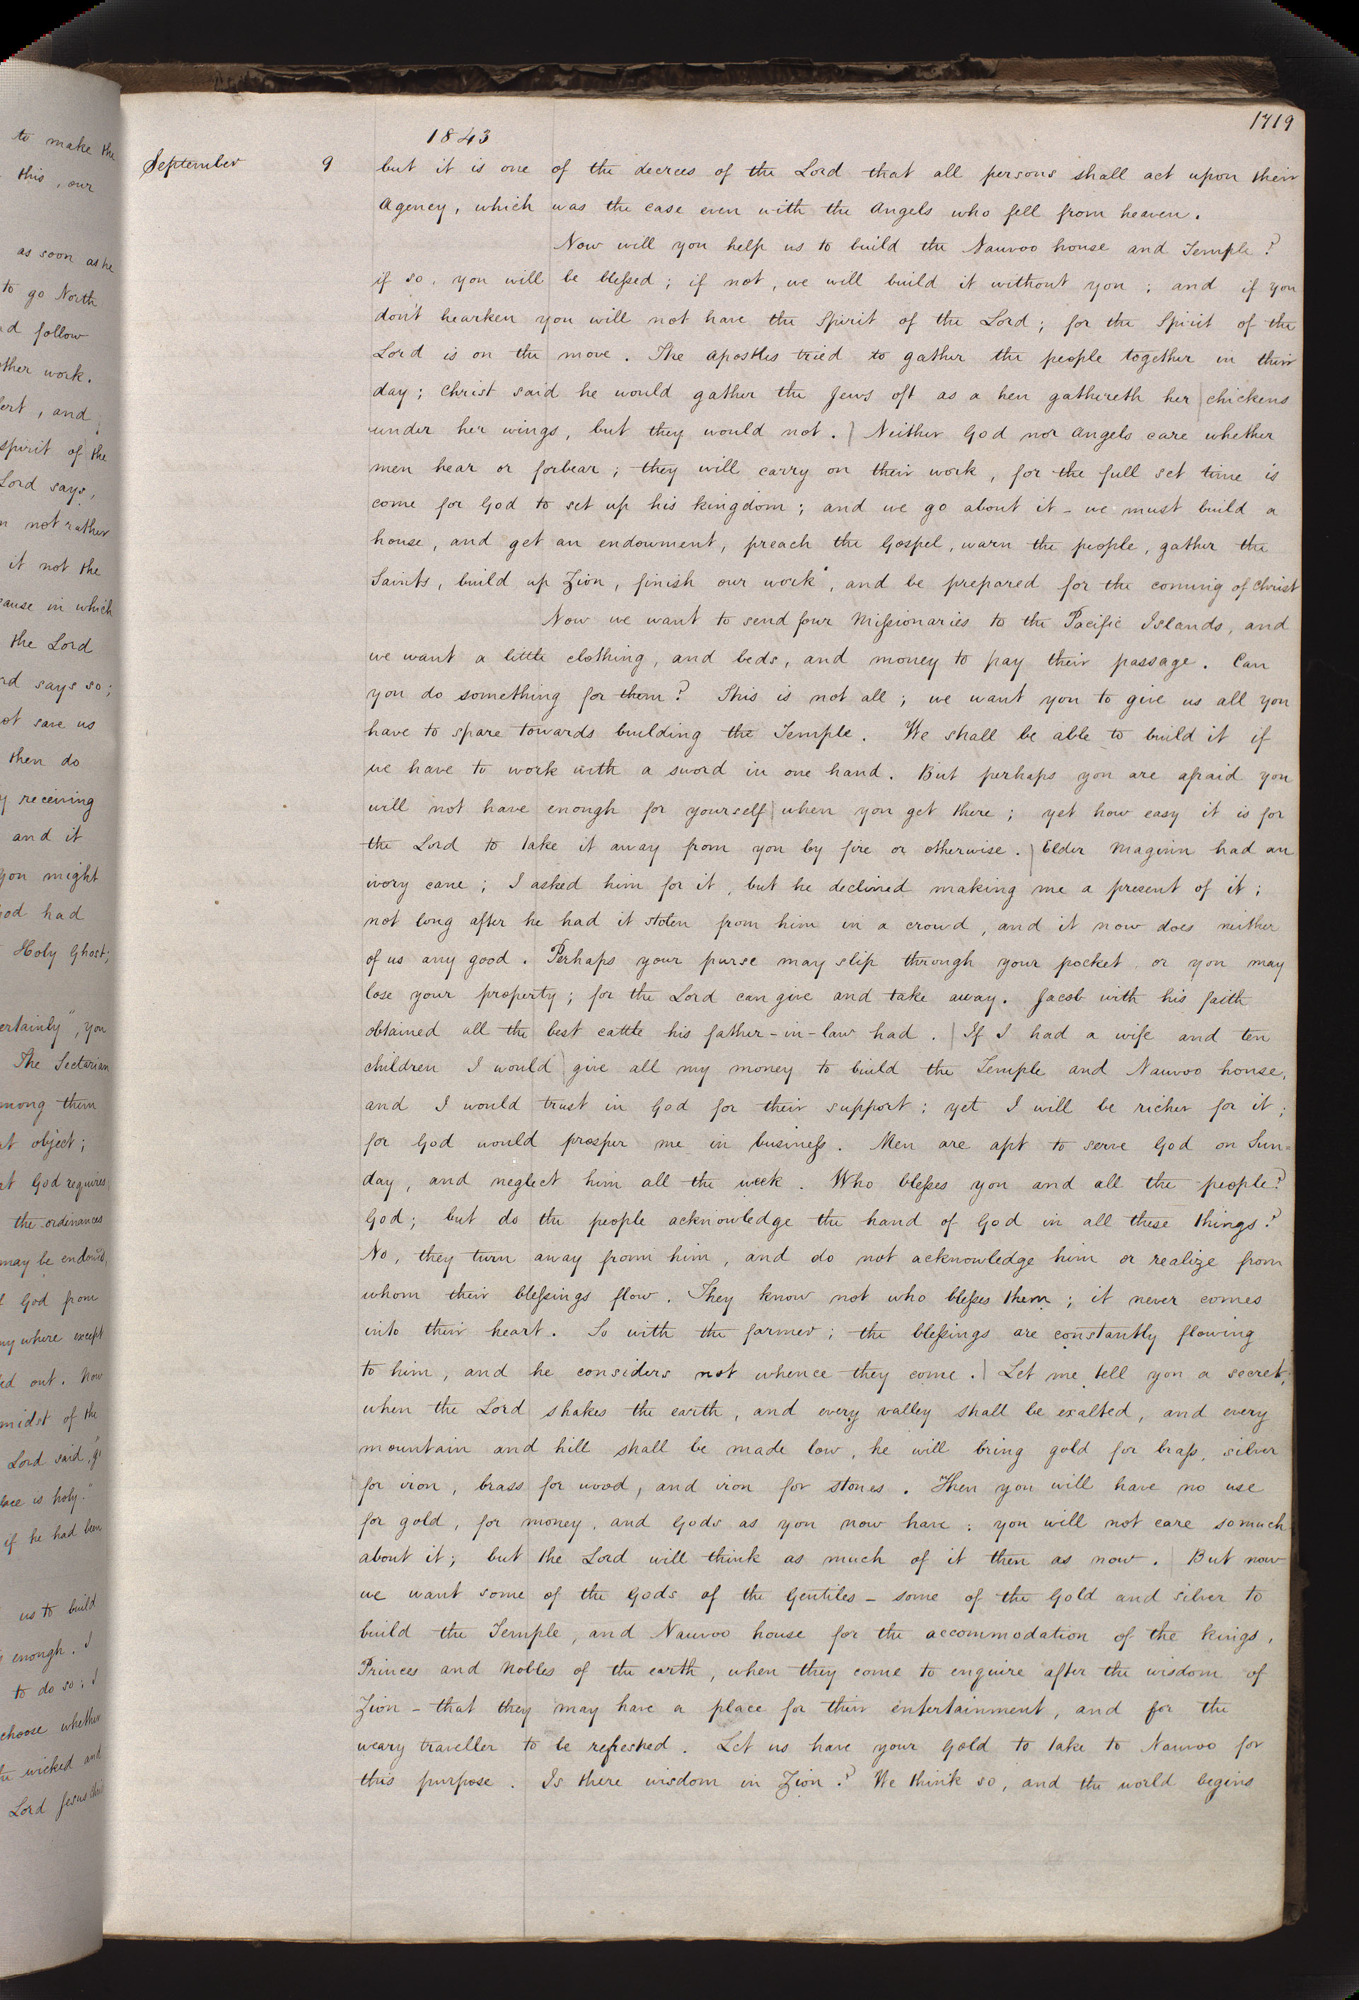 to make the
this, our
as soon as he
to go North
follow
other work.
and
spirit of the
Lord says,
not rather
it not the
cause in which
the Lord
says so;
save us
then do
receiving
and it
you might
God had
Holy Ghost;
certainly", you
The Sectarian
among them
object;
God requires
the ordinances
may be endowed,
God from
any where except
out. Now
midst of the
Lord said, "
place is holy."
if he had been
us to build
enough. I
to do so; I
choose whether
the wicked and
Lord Jesus Christ
1719
1843
September 9 but it is one of the decrees of the Lord that all persons shall act upon their
Agency, which was the case even with the Angels who fell from heaven.
Now will you help us to build the Nauvoo house and Temple?
if so, you will be blessed; if not, we will build it without you; and if you
don't hearken you will not have the Spirit of the Lord; for the Spirit of the
Lord is on the move. The apostles tried to gather the people together in their
day; Christ said he would gather the Jews oft as a hen gathereth her chickens
under her wings, but they would not. Neither God nor Angels care whether
men hear or forbear; they will carry on their work, for the full set time is
come for God to set up his kingdom; and we go about it - we must build a
house, and get an endowment, preach the Gospel, warn the people, gather the
Saints, build up Zion, finish our work, and be prepared for the coming of Christ
Now we want to send four Missionaries to the Pacific Islands, and
we want a little clothing, and beds, and money to pay their passage. Can
you do something for them? This is not all; we want you to give us all you
have to spare towards building the Temple. We shall be able to build it if
we have to work with a sword in one hand. But perhaps you are afraid you
will not have enough for yourself when you get there; yet how easy it is for
the Lord to take it away from you by fire or otherwise. Elder Maginn had an
ivory cane; I asked him for it, but he declined making me a present of it;
not long after he had it stolen from him in a crowd, and it now does neither
of us any good. Perhaps your purse may slip through your pocket or you may
lose your property; for the Lord can give and take away. Jacob with his faith
obtained all the best cattle his father-in-law had. If I had a wife and ten
children I would give all my money to build the Temple and Nauvoo house,
and I would trust in God for their support; yet I will be richer for it;
for God would prosper me in business. Men are apt to serve God on Sun-
day, and neglect him all the week. Who blesses you and all the people?
God; but do the people acknowledge the hand of God in all these things?
No, they turn away from him, and do not acknowledge him or realize from
whom their blessings flow. They know not who blesses them; it never comes
into their heart. So with the farmer; the blessings are constantly flowing
to him, and he considers not whence they come. Let me tell you a secret;
when the Lord shakes the earth, and every valley shall be exalted, and every
mountain and hill shall be made low, he will bring gold for brass, silver
for iron, brass for wood, and iron for stones. Then you will have no use
for gold, for money, and Gods as you now have; you will not care so much
about it; but the Lord will think as much of it then as now. But now
we want some of the Gods of the Gentiles - some of the Gold and silver to
build the Temple, and Nauvoo house for the accommodation of the kings,
Princes and Nobles of the earth, when they come to enquire after the wisdom of
Zion - that they may have a place for their entertainment, and for the
weary traveller to be refreshed. Let us have your Gold to take to Nauvoo for
this purpose. Is there wisdom in Zion? We think so, and the world begins